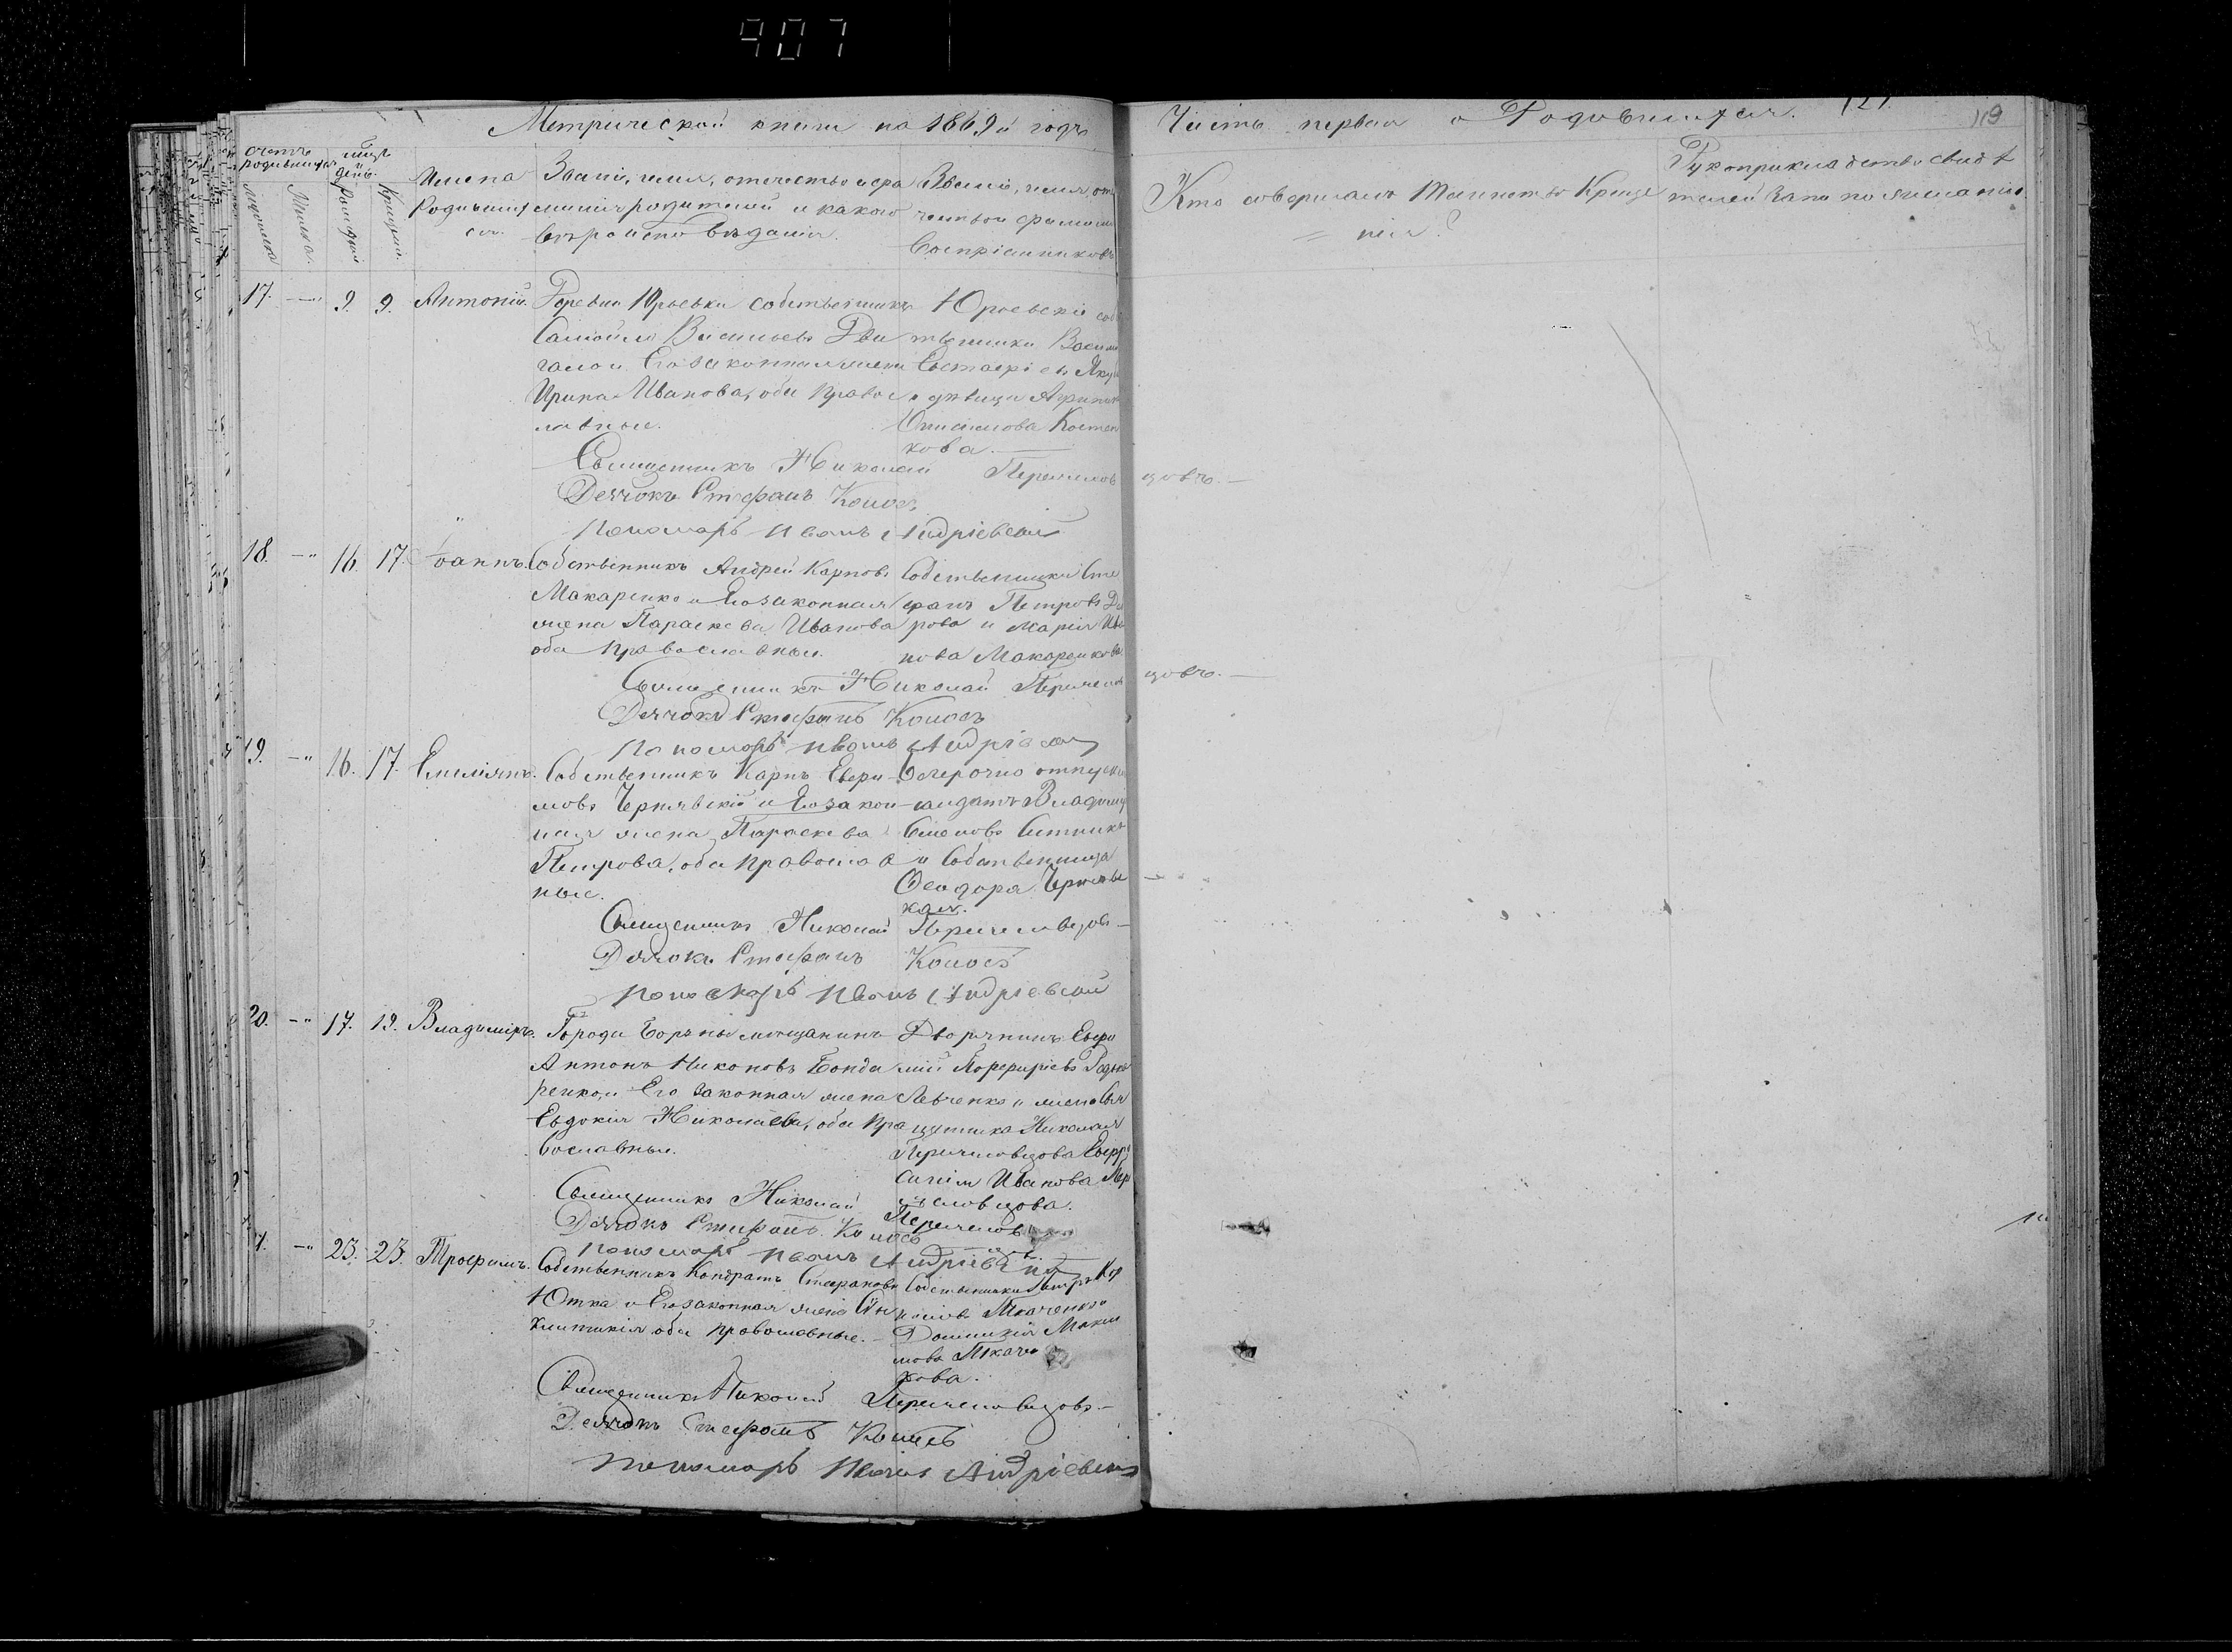 907
Метрической книги на 1869й годъ
Часть первая о Родившихся.
119
счетъ родившихся
мѣс. и день.
Мужска
Женска.
Рожденія
Крещен.
Имена Родившихся.
Званіе, имя, отечество и фа
милія родителей и какого
вѣроисповѣданія.
Званіе, имя, от
чество и фамилія
Воспріемниковъ
Кто совершалъ Таинство Креще
нія?
Рукоприкладство свидѣ
телей записи по желанію.
17. —" 9. 9. Антоній.
Деревни Юрьевки собственникъ
Самойло Васильевъ Дви
гало и Его законная жена
Ирина Иванова, оба правос
лавные.
Юрьевскіе соб
ственники Васил
Евстафіевъ
и дѣвица
Онисимова Костен
кова. —
Священникъ Николай Перешиловцовъ. —
Дьячокъ Стефанъ
Пономарь Иванъ Андріевскій
18. —" 16. 17. Іоаннъ.
Собственникъ Андрей Карповъ
Макаренко и Его законная
жена Параскева Иванова
оба православные.
Собственники Сте
фанъ Петровъ
и Марія Ива
нова Макаренкова
Священникъ Николай Перешиловцовъ. —
Дьячокъ Стефанъ
Пономарь Иванъ Андріевскій
19. —" 16. 17. Емиліянъ.
Собственникъ Карпъ Евфи
мовъ Чернявскій и Его закон
ная жена Параскева
Петрова, оба православ
ные.
Безсрочно отпускн
солдатъ Владимір
Семеновъ Ситникъ
и Собственница
Ѳеодора Чернявс
кая.
Священникъ Николай Перешиловцовъ —
Дьячокъ Стефанъ
Пономарь Иванъ Андріевскій
20. —" 17. 19. Владиміръ.
Города Борзны мещанинъ
Антонъ Никоновъ Бонда
ренко, и Его законная жена
Евдокія Николаева, оба пра
вославные.
Дворянинъ Евфи
мій Порфиріевъ Редька
Левченко и жена Свя
щенника Николая
Перешиловцова Евфро
синія Иванова Пере
шиловцова.
Священникъ Николай Перешиловцовъ
Дьячокъ Стефанъ
Пономарь Иванъ Андріевскій
—" 23. 23. Трофимъ.
Собственникъ Кондратъ Стефановъ
Ютка и Его законная жена
Клитикія оба православные. —
Собственники
Ткаченко и
Домникія Макси
мова Ткаче
кова.
Священникъ Николай Перешиловцовъ. —
Дьячокъ Стефанъ
Пономарь Иванъ Андріевскій